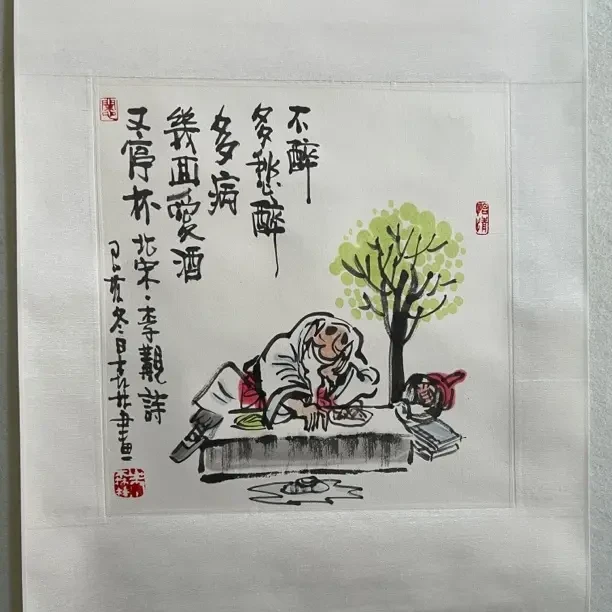 不醉
多愁醉
多病
幾回愛酒
又停杯
北宋·李觀詩
己亥冬日